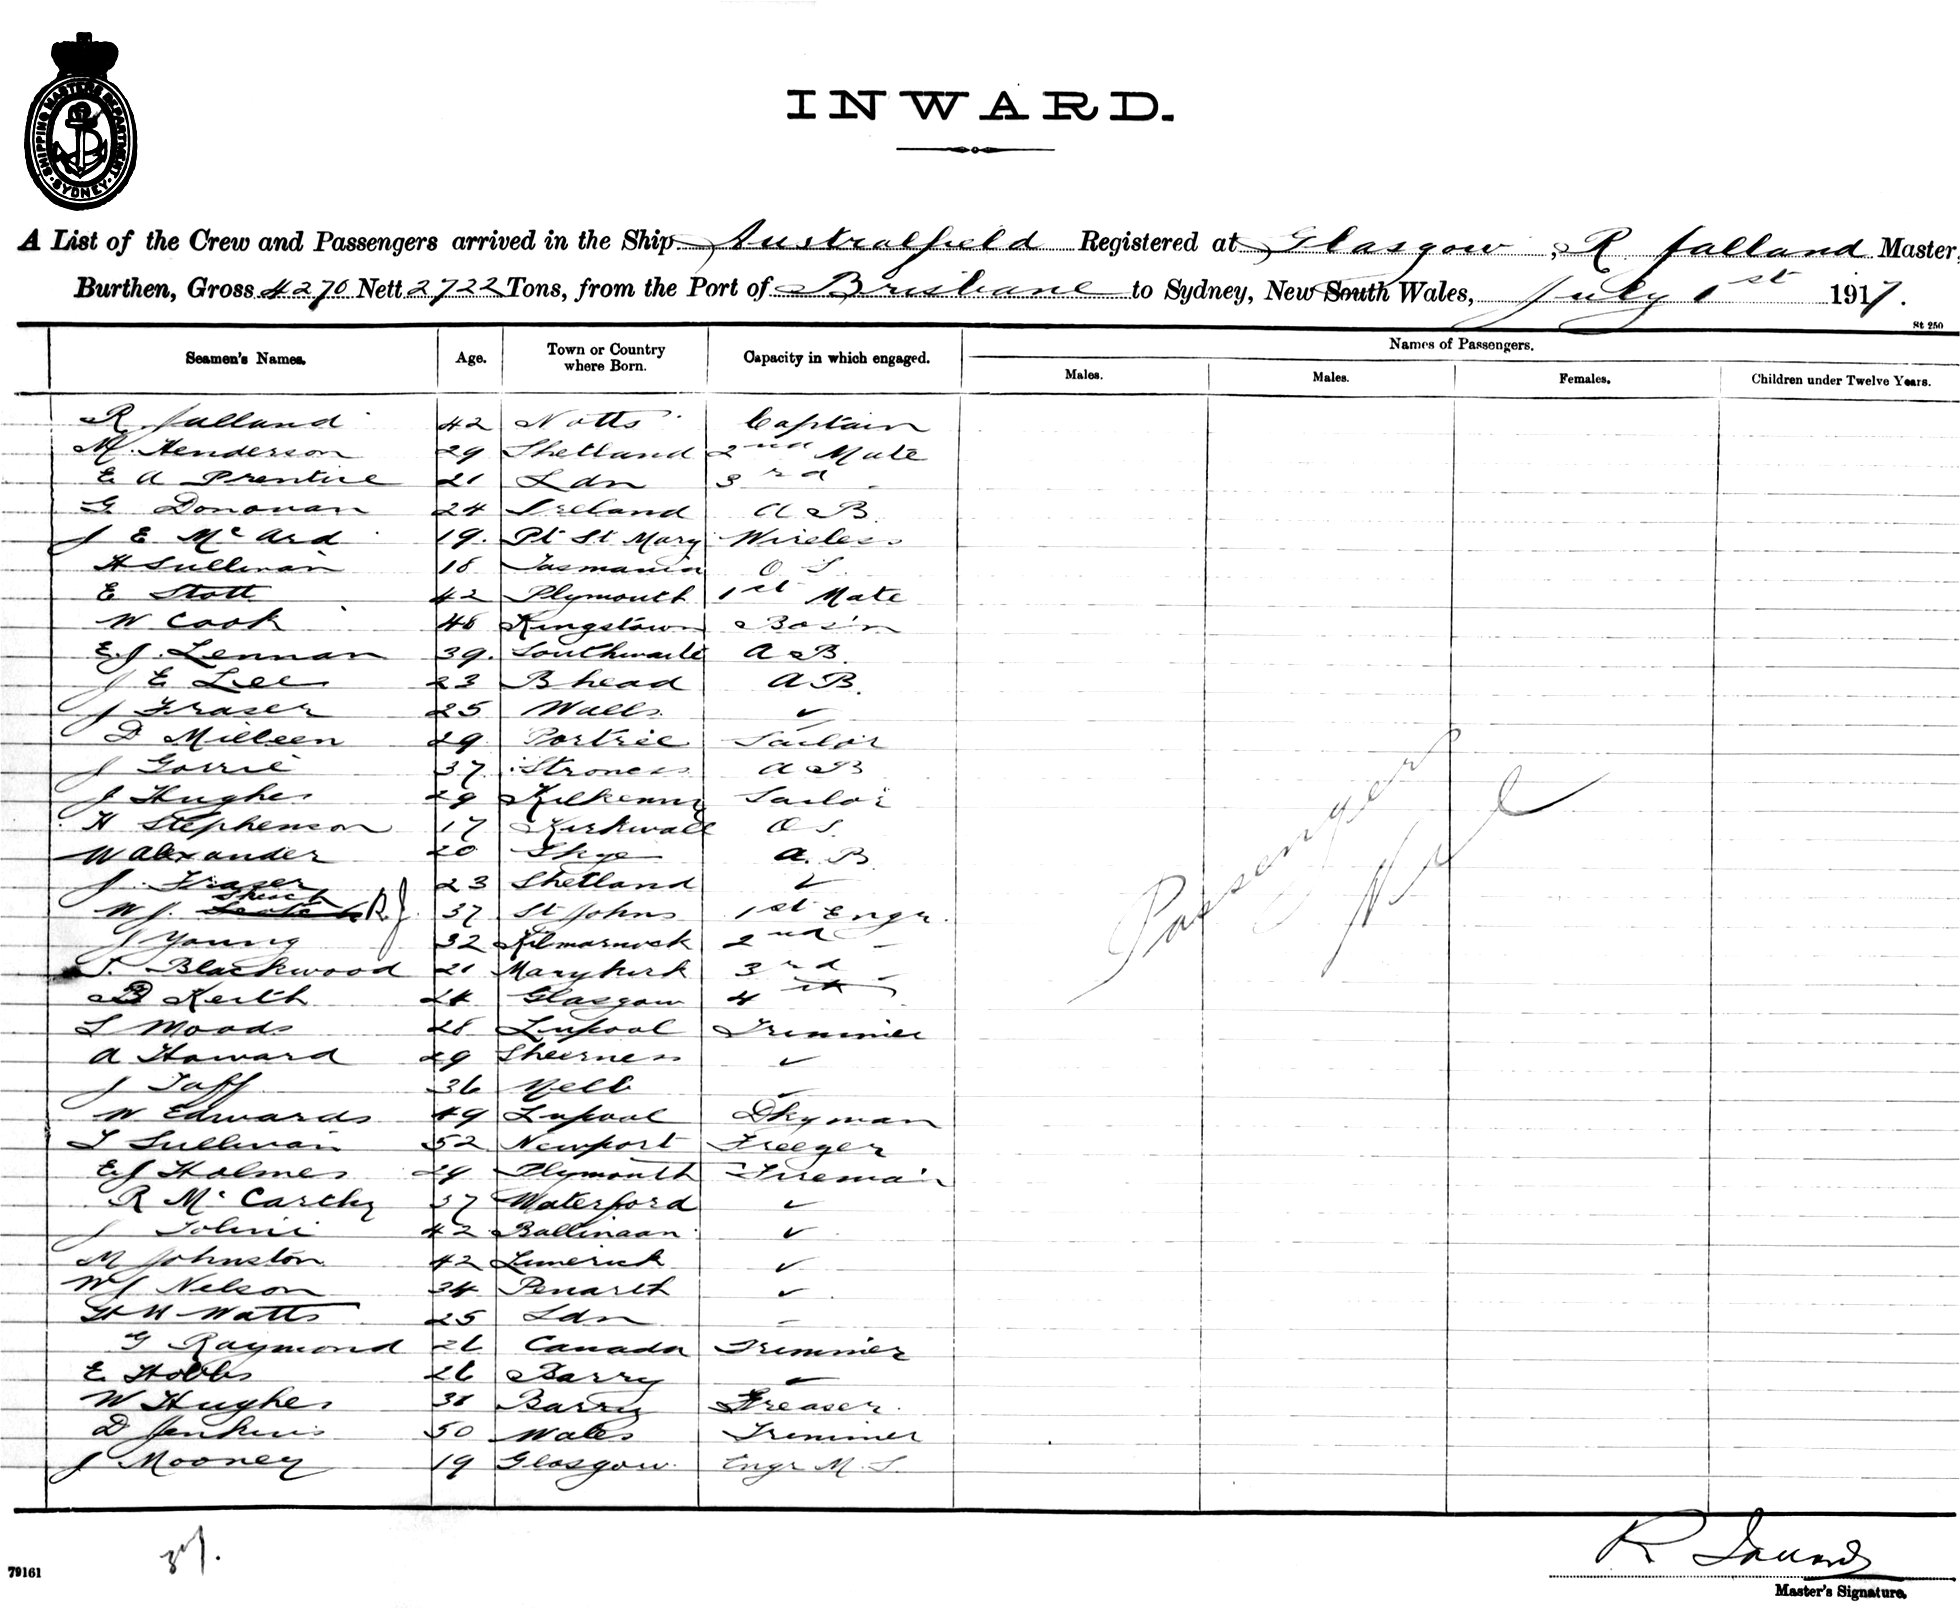 SHIPPING MASTERS DEPARTMENT SYDNEY
INWARD.
A List of the Crew and Passengers arrived in the Ship Australfield Registered at Glasgow, R Jalland Master,
Burthen, Gross 4270 Nett 2722 Tons, from the Port of Brisbane to Sydney, New South Wales, July 1st 1917.
St 250
Seamen's Names. Age. Town or Country where Born. Capacity in which engaged. Names of Passengers.
Males. Males. Females. Children under Twelve Years.
R Jalland 42 Notts Captain
M. Henderson 29 Shetland 2nd Mate
E A Prentice 21 Ldn 3rd -
G Donovan 24 Ireland A B.
J E McArd 19. Pt St Mary Wireless
H Sullivan 18 Tasmania O S.
E Stott 42 Plymouth 1st Mate
W Cook 48 Kingstown Bos'n
E.J. Lennan 39. Southwaite A B.
J E Lee 23 B head A B.
J Fraser 25 Walls ✓
D 29 Portree Sailor
J Gorrie 37 Stroness A B
J Hughes 29 Kilkenny Sailor
H Stephenson 17 Kirkwall O S.
W Alexander 20 Skye A. B.
J. Fraser 23 Shetland ✓
W J. R.J. 37 St Johns 1st Engr.
J Young 32 Kilmarnock 2nd -
J. Blackwood 21 Marykirk 3rd -
D Keith 24 Glasgow 4th
Woods 28 Lupool Trimmer
A Howard 29 Sheerness ✓
J Taff 36 Yell ✓
W Edwards 49 Lupool Dkyman
T Sullivan 52 Newport
E J Holmes 29 Plymouth Fireman
R McCarthy 37 Waterford ✓
J 42 ✓
M Johnston 42 Limerick ✓
W J Nelson 34 Penarth ✓
Watts 25 Ldn -
G Raymond 26 Canada Trimmer
E Hobbs 26 Barry ✓
W Hughes 38 Barry Greaser.
D Jenkins 50 Wales Trimmer
J Mooney 19 Glasgow. Engr M. S.
Passengers Nil
37.
R Jalland
79161
Master's Signature.